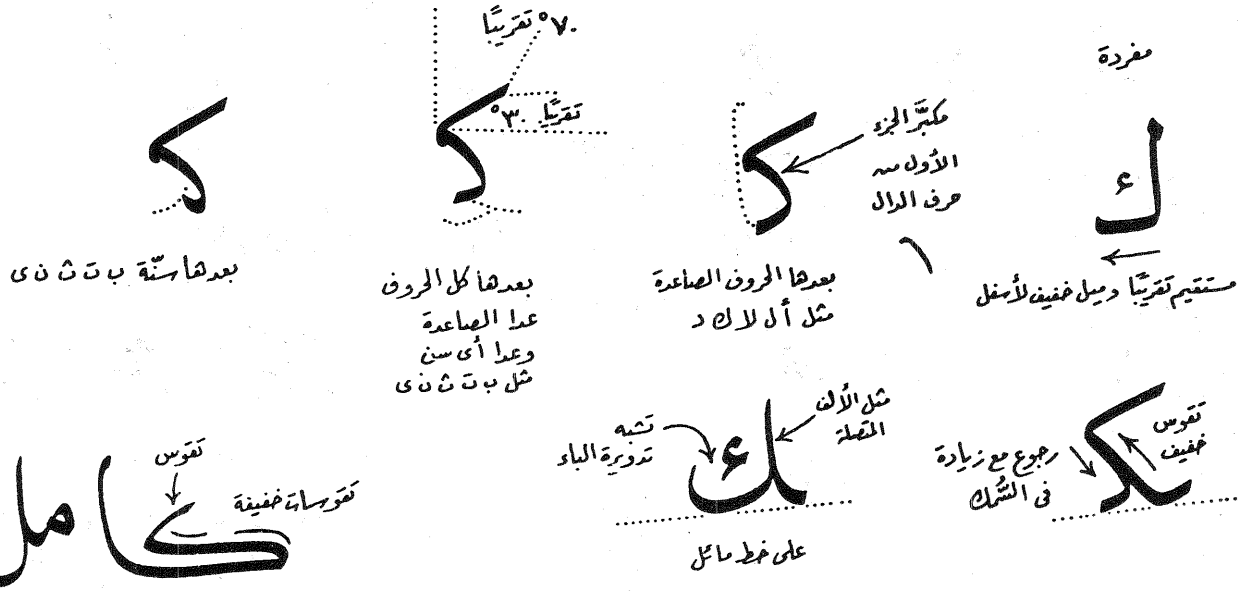 مفردة
ك
مستقيم تقريبًا وميل خفيف لأسفل
مكبَّر الجزء
الأول من
حرف الدال
كد
بعدها الحروف الصاعدة
مثل أ ل لا ك د
٧٠° تقريبًا
٣٠° تقريبًا
كد
بعدها كل الحروف
عدا الصاعدة
وعدا أى سن
مثل ب ت ث ن ى
كد
بعدها سنّة ب ت ث ن ى
تقوس
خفيف
رجوع مع زيادة
فى السُّمك
مثل الألف
المتصلة
تشبه
تدويرة الباء
ك
على خط مائل
تقوس
تقوسات خفيفة
كامل